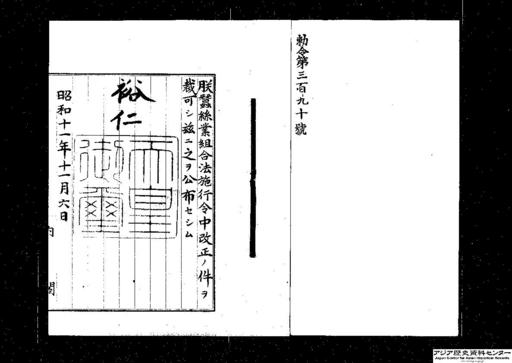 勅令第三百九十號
朕蠶絲業組合法施行令中改正ノ件ヲ
裁可シ茲ニ之ヲ公布セシム
裕仁
天皇
御璽
昭和十一年十一月六日
内閣
アジア歴史資料センター
Japan Center for Asian Historical Records